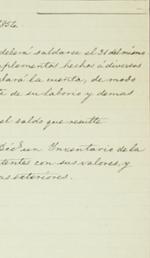 1856
deberá saldarse el 31 del mismo
suplementos hechos á diversos
lará la cuenta, de modo
te de su laborio y demas
el saldo que resulte
un Inventario de la
tentes con sus valores, y
as exteriores.